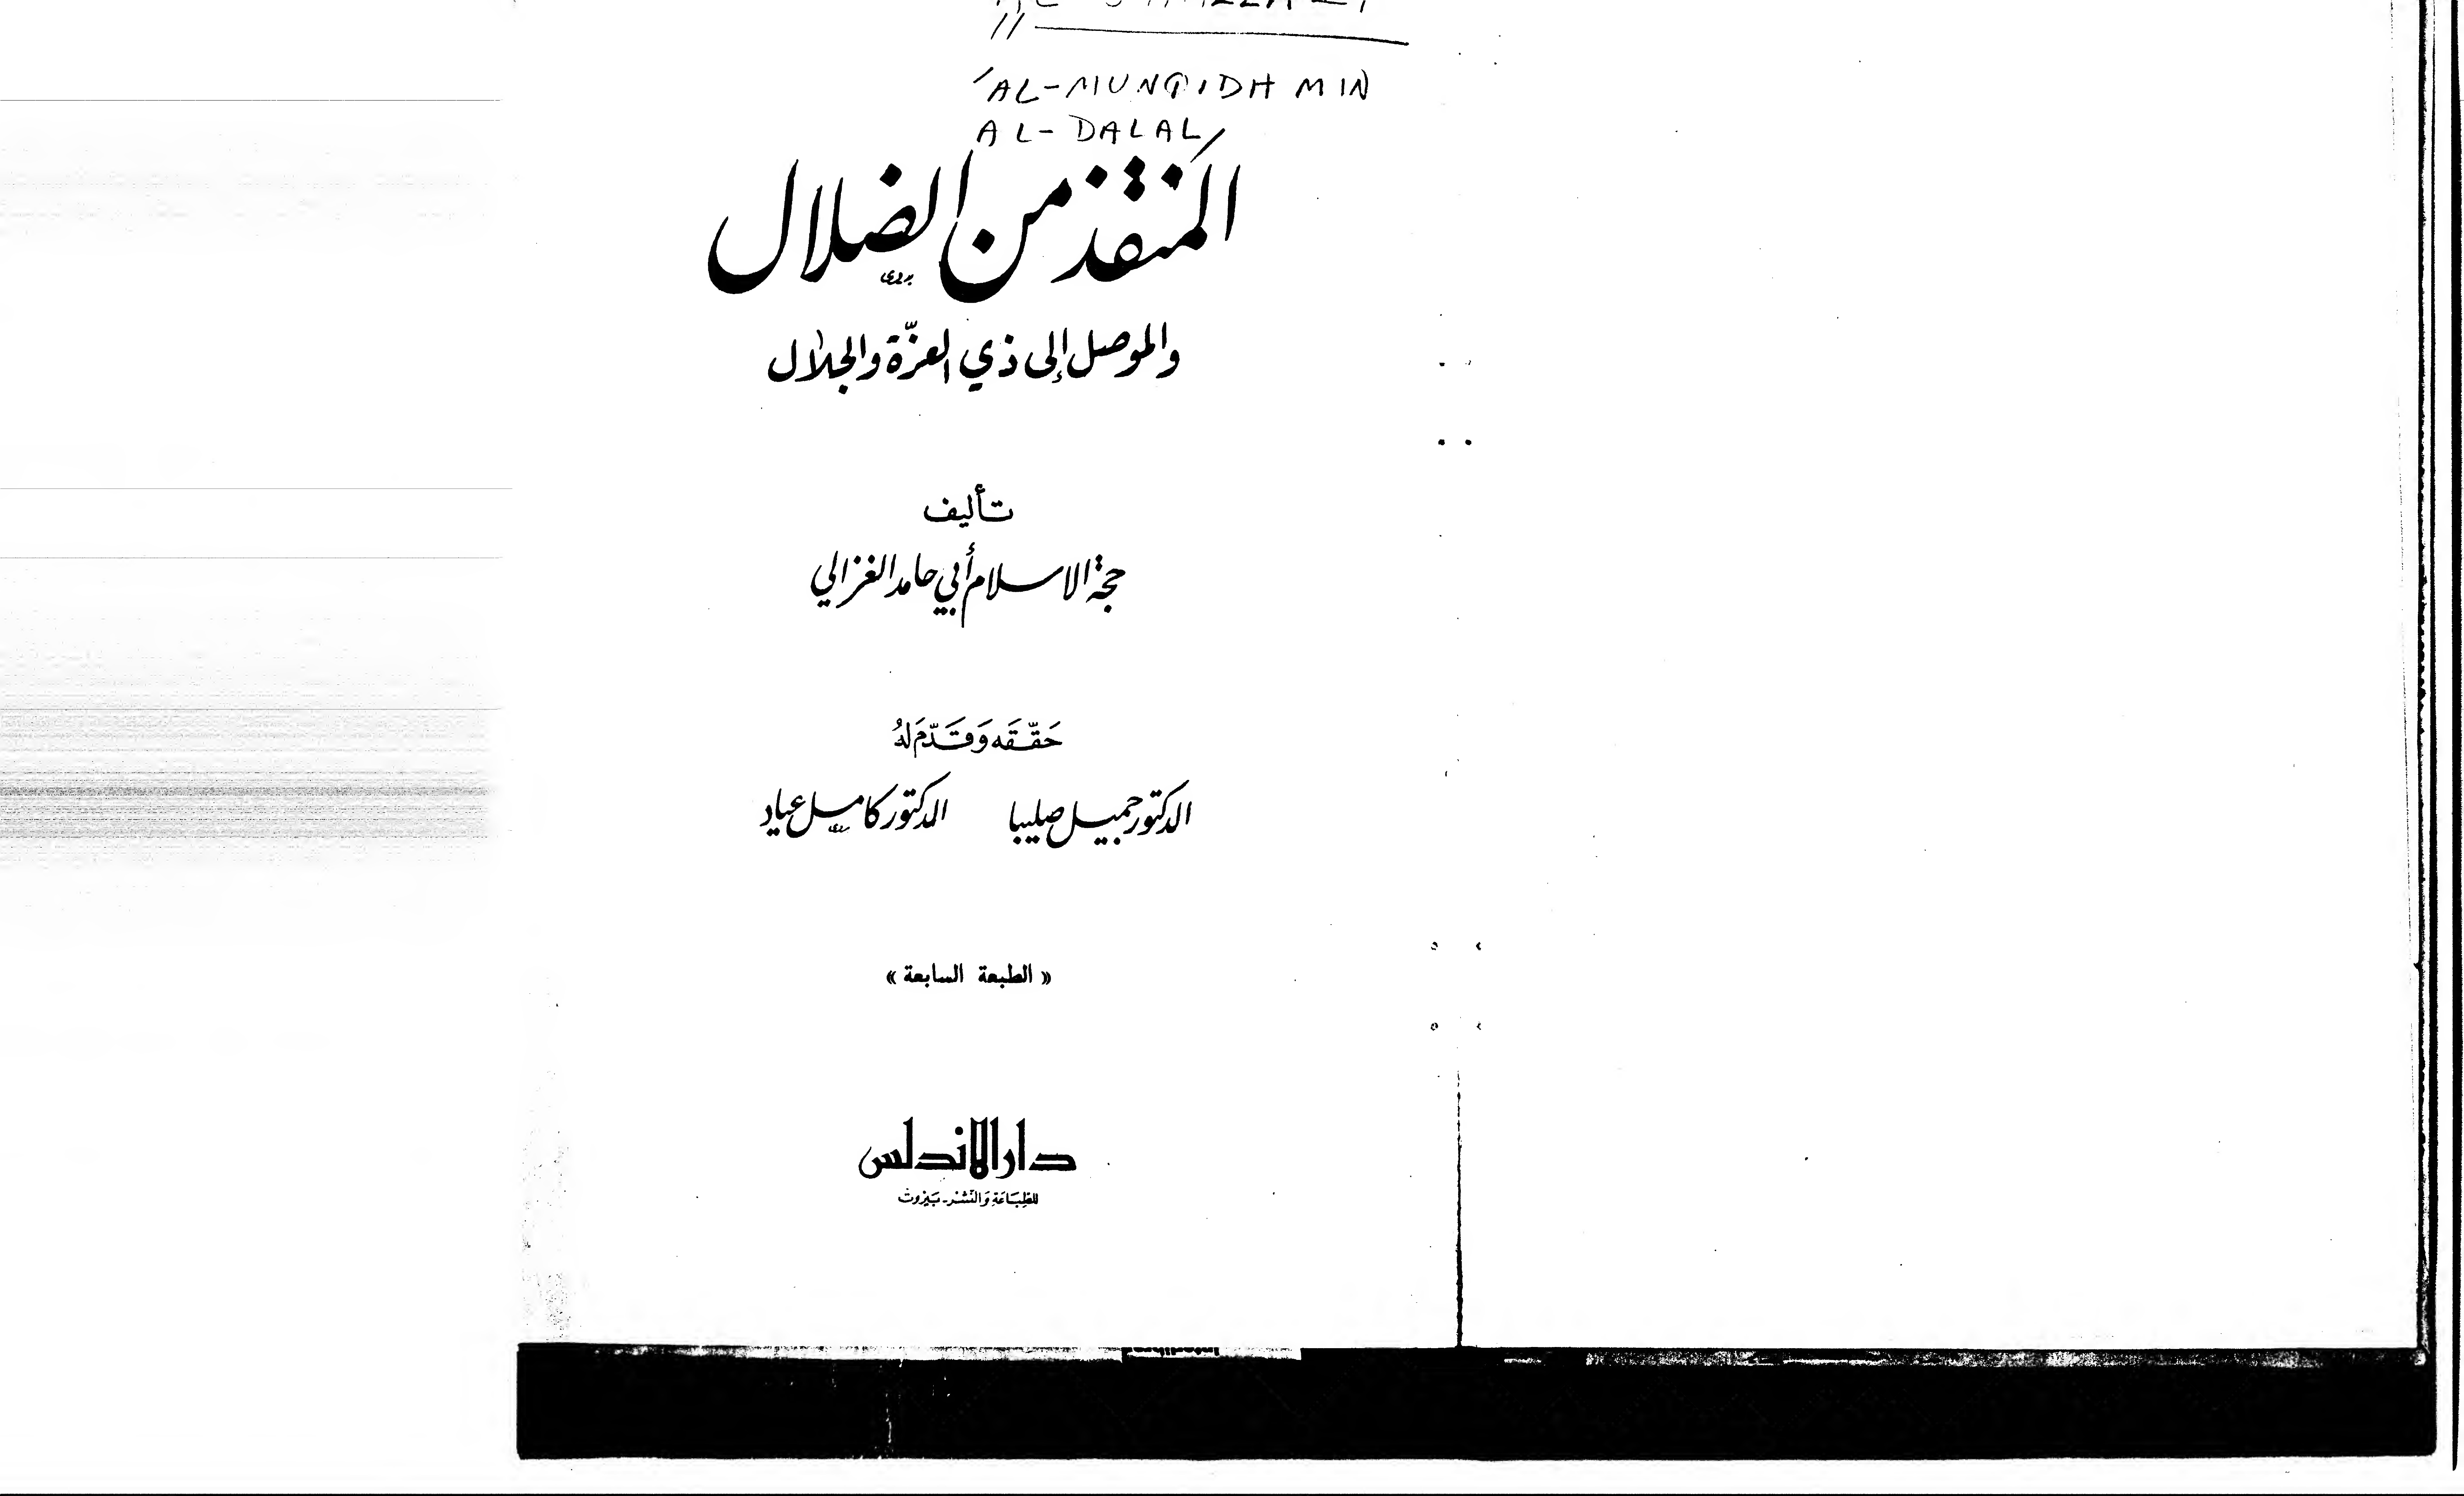 'AL-MUNQIDH MIN
AL-DALAL/
المنقذ من الضلال
والموصل إلى ذي العزّة والجلال
تأليف
حجة الاسلام أبي حامد الغزالي
حَقّقَه وَقَدّمَ لهُ
الدكتور جميل صليبا الدكتور كامل عياد
« الطبعة السابعة »
دار الاندلس
للطِبَاعَةِ وَالنّشْر - بَيْروت